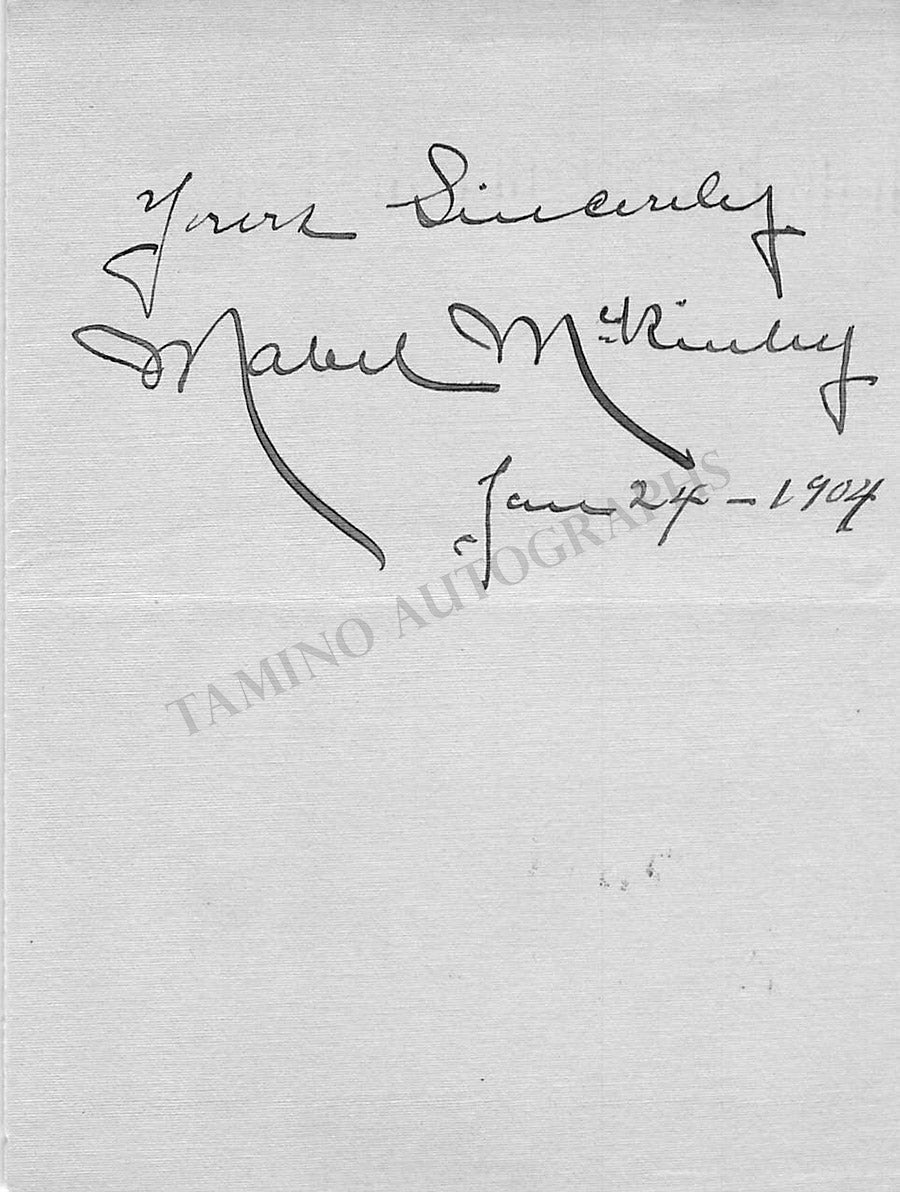 Yours Sincerely
Mabel McKinley
Jan 24 - 1904
TAMINO AUTOGRAPHS